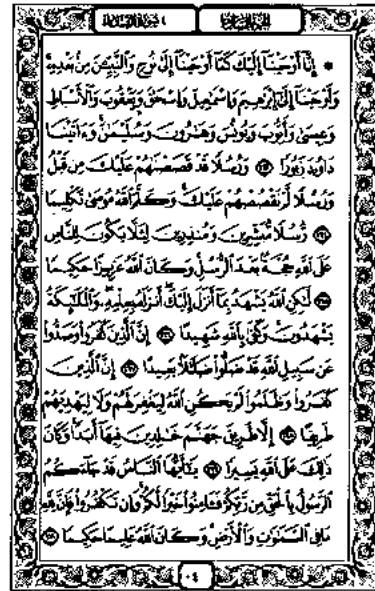 الجزء السادس سورة النساء
۞ إِنَّآ أَوْحَيْنَآ إِلَيْكَ كَمَآ أَوْحَيْنَآ إِلَىٰ نُوحٍ وَٱلنَّبِيِّـۧنَ مِنۢ بَعْدِهِۦ
وَأَوْحَيْنَآ إِلَىٰٓ إِبْرَٰهِيمَ وَإِسْمَـٰعِيلَ وَإِسْحَـٰقَ وَيَعْقُوبَ وَٱلْأَسْبَاطِ
وَعِيسَىٰ وَأَيُّوبَ وَيُونُسَ وَهَـٰرُونَ وَسُلَيْمَـٰنَ وَءَاتَيْنَا
دَاوُۥدَ زَبُورًا ١٦٣ وَرُسُلًا قَدْ قَصَصْنَـٰهُمْ عَلَيْكَ مِن قَبْلُ
وَرُسُلًا لَّمْ نَقْصُصْهُمْ عَلَيْكَ وَكَلَّمَ ٱللَّهُ مُوسَىٰ تَكْلِيمًا
١٦٤ رُّسُلًا مُّبَشِّرِينَ وَمُنذِرِينَ لِئَلَّا يَكُونَ لِلنَّاسِ
عَلَى ٱللَّهِ حُجَّةٌۢ بَعْدَ ٱلرُّسُلِ وَكَانَ ٱللَّهُ عَزِيزًا حَكِيمًا
١٦٥ لَّـٰكِنِ ٱللَّهُ يَشْهَدُ بِمَآ أَنزَلَ إِلَيْكَ أَنزَلَهُۥ بِعِلْمِهِۦ وَٱلْمَلَـٰٓئِكَةُ
يَشْهَدُونَ وَكَفَىٰ بِٱللَّهِ شَهِيدًا ١٦٦ إِنَّ ٱلَّذِينَ كَفَرُوا۟ وَصَدُّوا۟
عَن سَبِيلِ ٱللَّهِ قَدْ ضَلُّوا۟ ضَلَـٰلًۢا بَعِيدًا ١٦٧ إِنَّ ٱلَّذِينَ
كَفَرُوا۟ وَظَلَمُوا۟ لَمْ يَكُنِ ٱللَّهُ لِيَغْفِرَ لَهُمْ وَلَا لِيَهْدِيَهُمْ
طَرِيقًا ١٦٨ إِلَّا طَرِيقَ جَهَنَّمَ خَـٰلِدِينَ فِيهَآ أَبَدًا وَكَانَ
ذَٰلِكَ عَلَى ٱللَّهِ يَسِيرًا ١٦٩ يَـٰٓأَيُّهَا ٱلنَّاسُ قَدْ جَآءَكُمُ
ٱلرَّسُولُ بِٱلْحَقِّ مِن رَّبِّكُمْ فَـَٔامِنُوا۟ خَيْرًا لَّكُمْ وَإِن تَكْفُرُوا۟ فَإِنَّ لِلَّهِ
مَا فِى ٱلسَّمَـٰوَٰتِ وَٱلْأَرْضِ وَكَانَ ٱللَّهُ عَلِيمًا حَكِيمًا ١٧٠